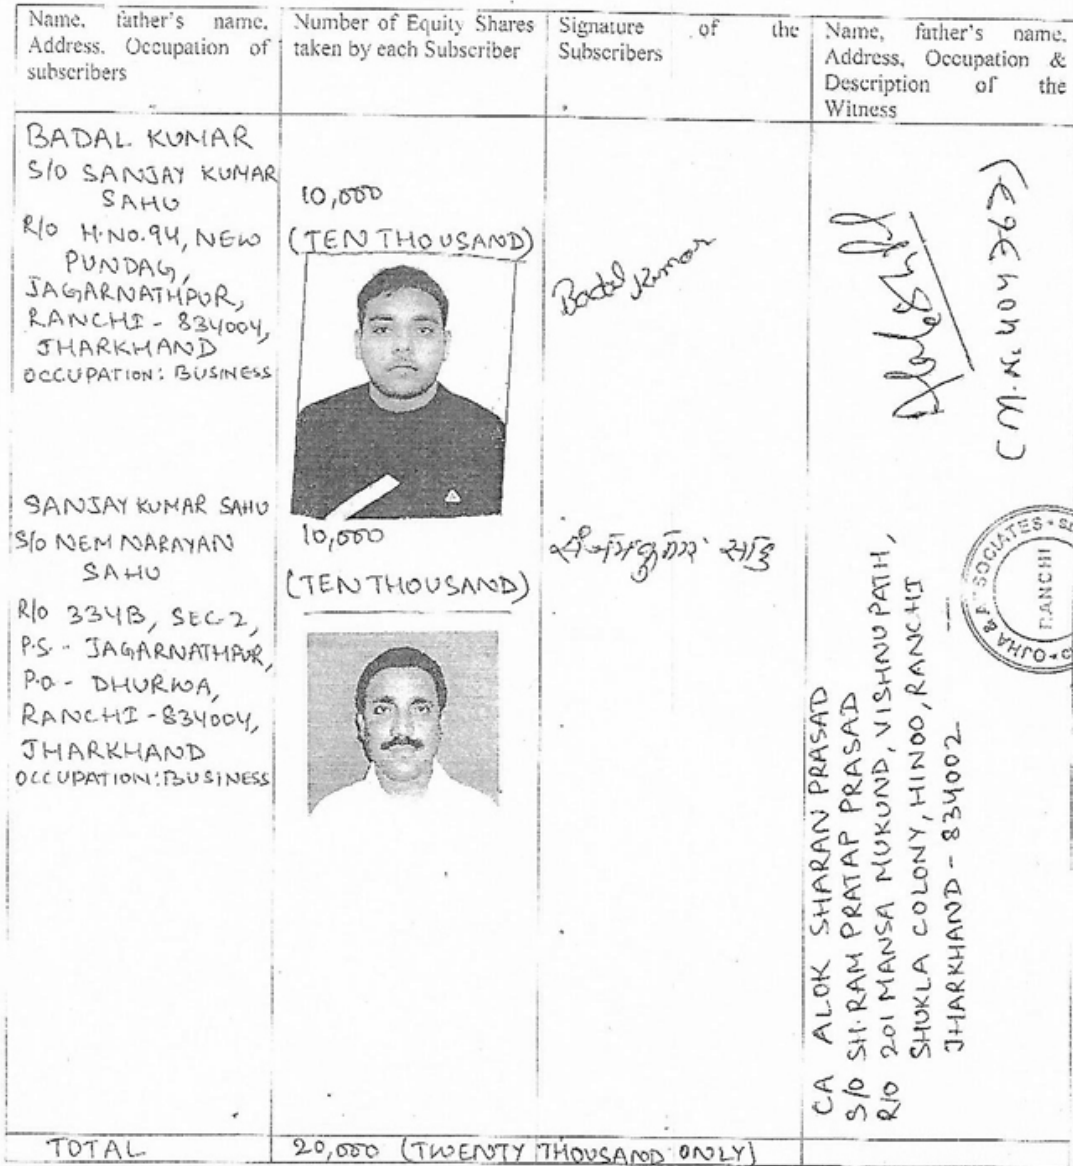 Name, father's name, Address, Occupation of subscribers
Number of Equity Shares taken by each Subscriber
Signature of the Subscribers
Name, father's name, Address, Occupation & Description of the Witness
BADAL KUMAR
S/O SANJAY KUMAR
SAHU
R/O H.NO.94, NEW
PUNDAG,
JAGARNATHPUR,
RANCHI - 834004,
JHARKHAND
OCCUPATION: BUSINESS
10,000
(TEN THOUSAND)
Badal Kumar
SANJAY KUMAR SAHU
S/O NEM NARAYAN
SAHU
R/O 334B, SEC-2,
P.S. - JAGARNATHPUR,
P.O - DHURWA,
RANCHI - 834004,
JHARKHAND
OCCUPATION: BUSINESS
10,000
(TEN THOUSAND)
(M.No 404376)
OJHA & ASSOCIATES
RANCHI
CA ALOK SHARAN PRASAD
S/O SH. RAM PRATAP PRASAD
R/O 201 MANSA MUKUND, VISHNU PATH,
SHUKLA COLONY, HINOO, RANCHI
JHARKHAND - 834002
TOTAL
20,000 (TWENTY THOUSAND ONLY)